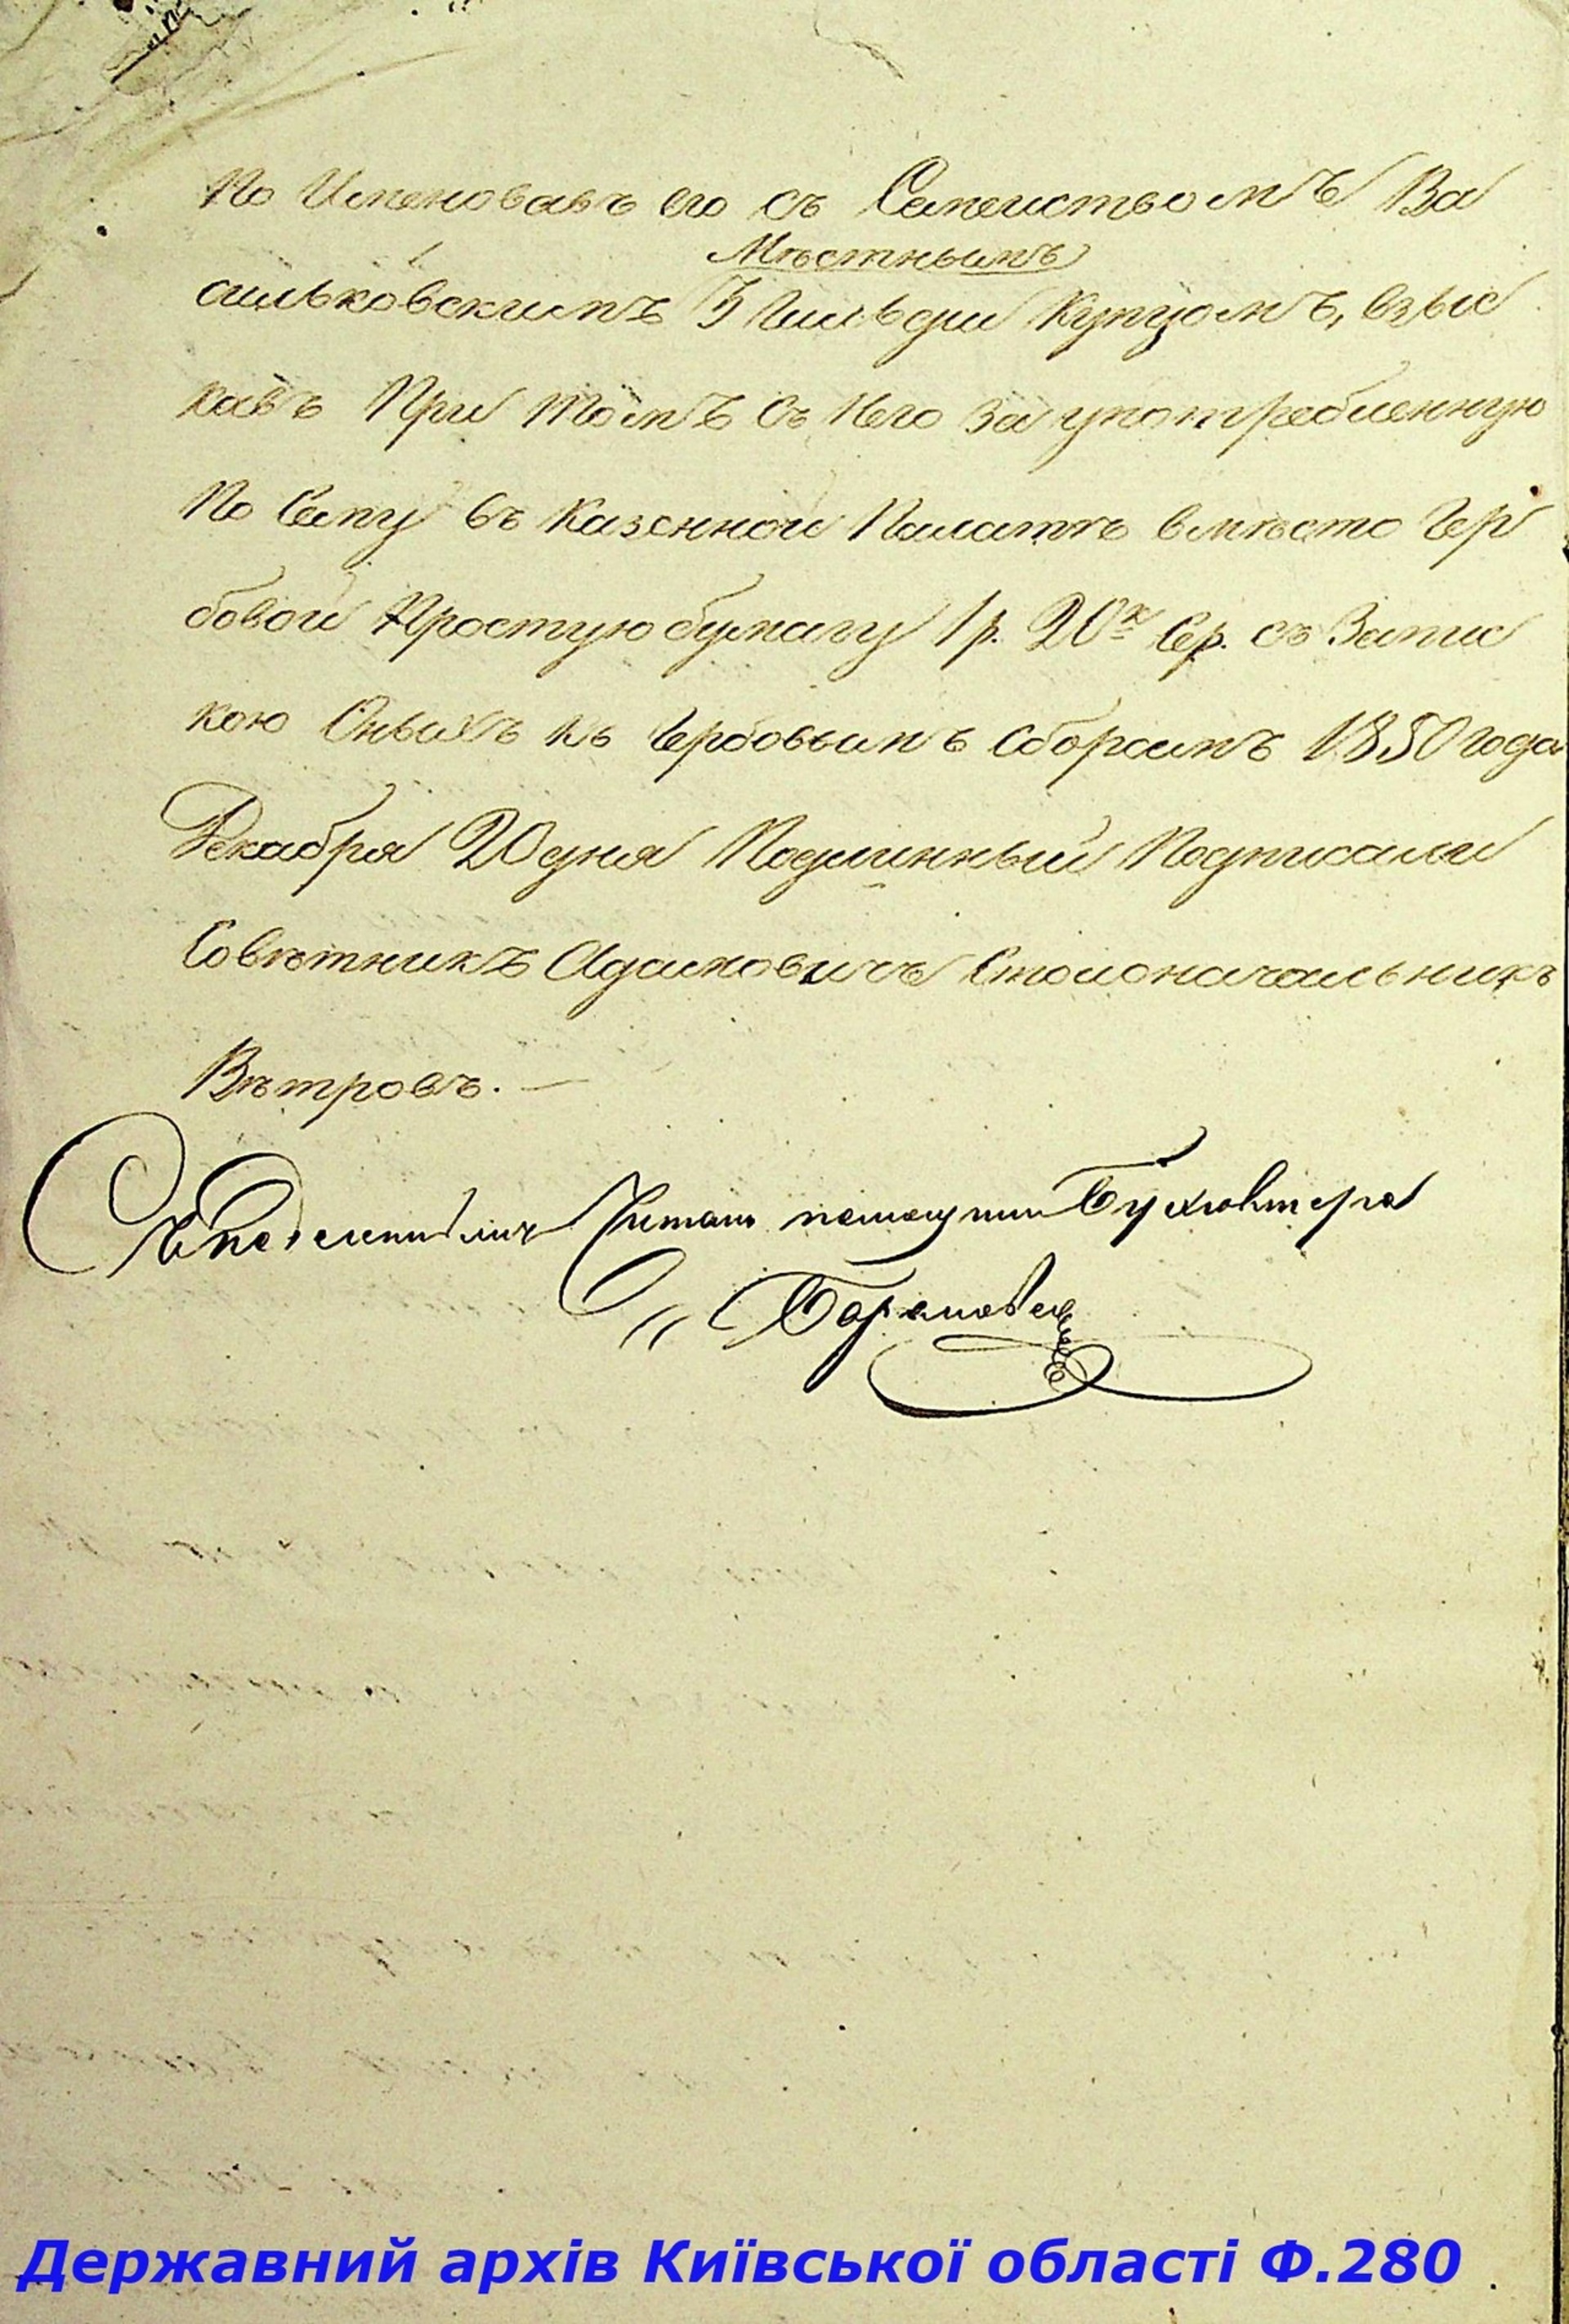 По Именовавъ его съ Семействомъ Ва
Мѣстнымъ
сильковскимъ 3 Гильдіи Купцомъ, взыс
кавъ При томъ съ Него За употребленную
По Сему въ Казенной Палатѣ вмѣсто Гер
бовой Простую бумагу 1 р. 20к Сер. съ Запис
кою Оныхъ къ Гербовымъ сборамъ 1850 года
Декабря 20 дня Подлинный Подписали
Совѣтникъ Адамовичъ Столоначальникъ
Вѣтровъ. —
Съ подлиннымъ Читалъ помощникъ Бухгалтера
Державний архів Київської області Ф.280